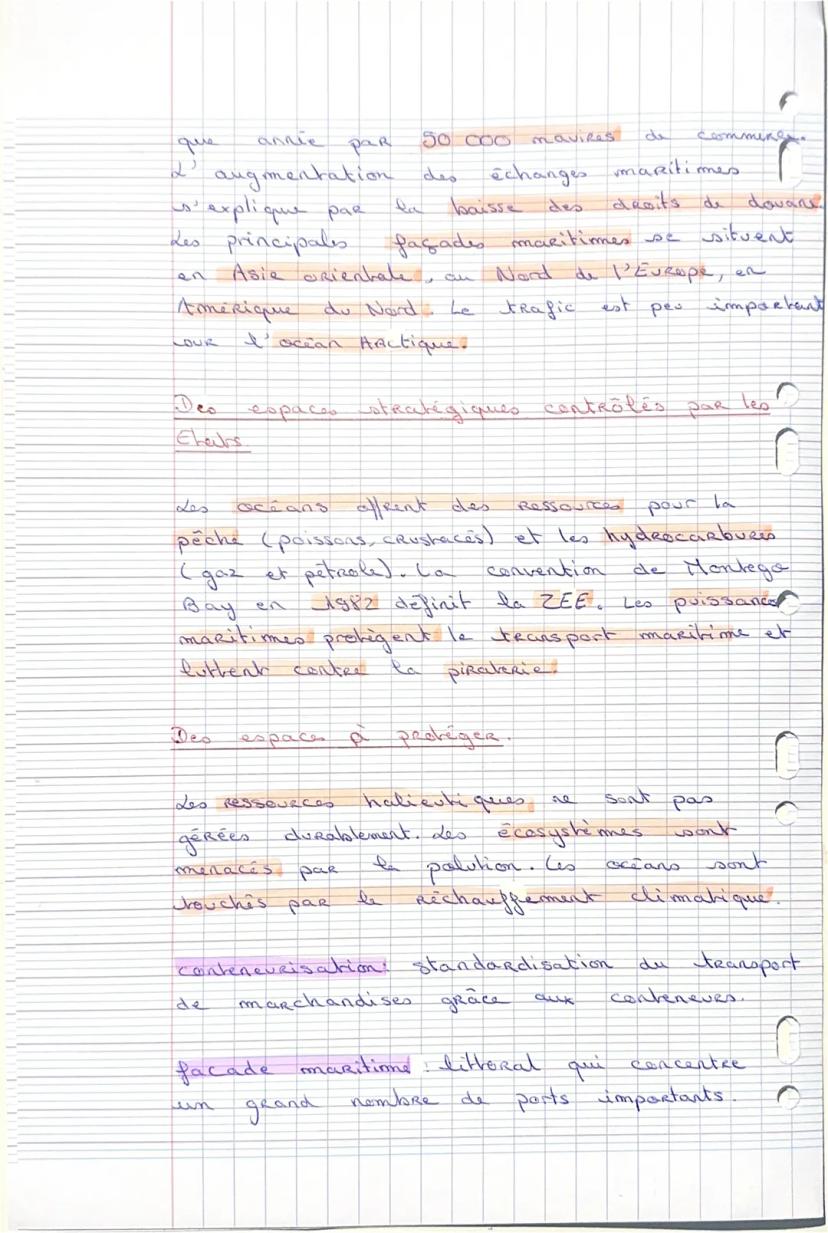 que année par 50 000 navires de commerce.
L'augmentation des échanges maritimes
s'explique par la baisse des droits de douane.
Les principales façades maritimes se situent
en Asie orientale, au Nord de l'Europe, en
Amérique du Nord. Le trafic est peu important
sur l'océan Arctique.
Des espaces stratégiques contrôlés par les
Etats.
Les océans offrent des ressources pour la
pêche (poissons, crustacés) et les hydrocarbures
(gaz et pétrole). La convention de Montego
Bay en 1982 définit la ZEE. Les puissances
maritimes protègent le transport maritime et
luttent contre la piraterie.
Des espaces à protéger.
Les ressources halieutiques ne sont pas
gérées durablement. Les écosystèmes sont
menacés par la polution. Les océans sont
touchés par le réchauffement climatique.
conteneurisation : standardisation du transport
de marchandises grâce aux conteneurs.
facade maritime : littoral qui concentre
un grand nombre de ports importants.